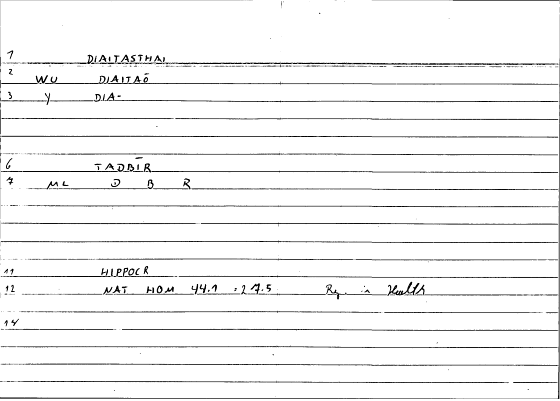 1 DIAITASTHAI
2 WU DIAITAŌ
3 Y DIA-
6 TADBĪR
7 ML D B R
11 HIPPOCR
12 NAT HOM 44.1 :27.5 Reg. in Health
14